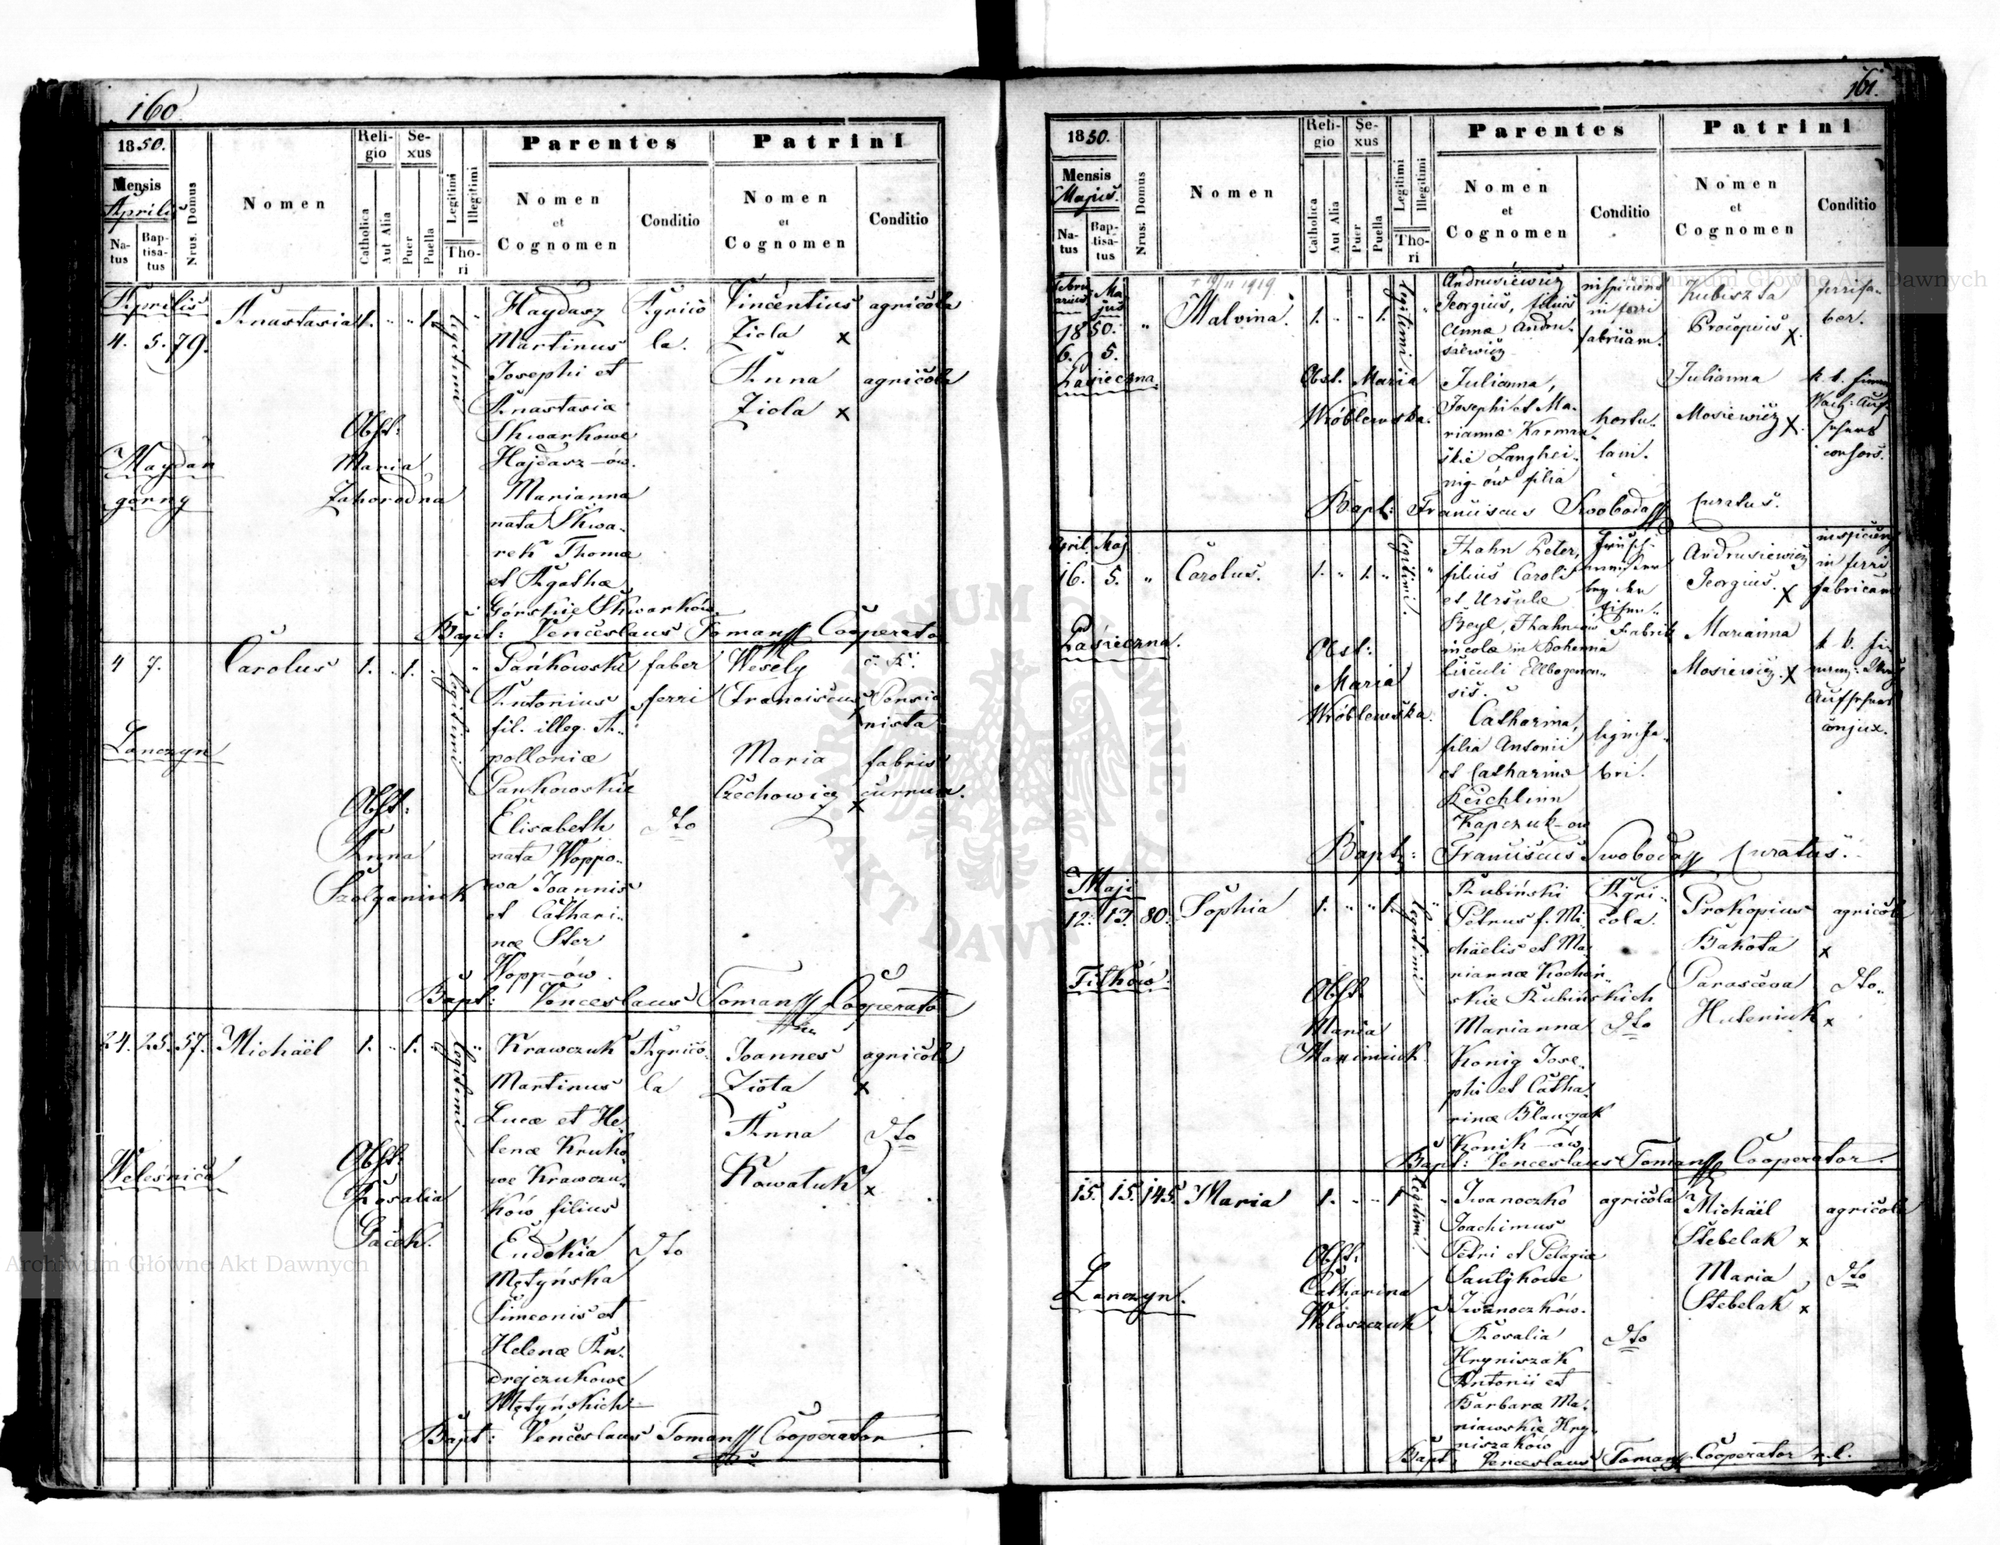 160
1850.
Mensis
Aprilis
Na-
tus
Bap-
tisa-
tus
Nrus. Domus
Nomen
Reli-
gio
Catholica
Aut Alia
Se-
xus
Puer
Puella
Legitimi
Illegitimi
Tho-
ri
Parentes
Nomen
et
Cognomen
Conditio
Patrini
Nomen
et
Cognomen
Conditio
Aprilis
4. 5. 79.
Anastasia
1. " " 1.
legitimi
Maydan
gorny
Obst:
Maria
Zahorodna
Haydasz
Martinus
Josephi et
Anastasiæ
Skwarkowe
Hajdasz-ów.
Marianna
nata Skwa-
rek Thomæ
et Agathæ
Górskie Skwarków
Agrico
la.
Vincentius
Ziola x
Anna
Ziola x
agricola
agricola
Bapt: Venceslaus Toman Cooperator
4 7.
Carolus
1. " 1. "
legitimi
Lanczyn
Obst:
Anna
Szolganiuk
Pańkowski
Antonius
fil. illeg. A-
polloniæ
Pankowskie
Elisabeth
nata Woppo-
wa Joannis
et Cathari-
næ Ster
Wopp-ów.
faber
ferri
dto
Wesely
Franciscus
x
Maria
Czechowicz
x
c. k.
Pensio
nista
fabris
curruum.
Bapt: Venceslaus Toman Cooperator
24. 25. 57.
Michäel
1. " 1. "
legitimi
Welesnica
Obst:
Rosalia
Gacek.
Krawczuk
Martinus
Lucæ et He-
lenæ Kruko-
we Krawczu-
ków filius
Eudokia
Mętyńska
Simeonis et
Helenæ An-
drejczukowe
Mętyńskich
Agrico-
la
dto
Joannes
Ziola x
Anna
Kowaluk x
agricola
dto
Bapt: Venceslaus Toman Cooperator
161.
1850.
Mensis
Majus.
Na-
tus
Bap-
tisa-
tus
Nrus. Domus
Nomen
Reli-
gio
Catholica
Aut Alia
Se-
xus
Puer
Puella
Legitimi
Illegitimi
Tho-
ri
Parentes
Nomen
et
Cognomen
Conditio
Patrini
Nomen
et
Cognomen
Conditio
Febru
arius
Ma
jus
1850.
6. 5.
Pasieczna
1919.
Malvina.
1. " " 1.
legitimi
Obst. Maria
Wróblewska.
Andrusiewicz
Georgius, filius
Annæ Andru-
siewicz
Julianna,
Josephi et Ma-
riannæ Karma-
skie Langhei-
nig-ów filia
in ferri
fabricam.
hortu-
lani.
Kubiszta
Procopius x
Julianna
Mosiewicz x.
ferrifa-
ber.
consors.
Bapt: Franciscus Swoboda Curatus.
April Maj
16. 5. "
Carolus.
1. " 1. "
legitimi.
Pasieczna.
Obst:
Maria
Wróblewska.
Hahn Peter,
filius Caroli
et Ursulæ
Beyl, Hahn-ów
incolæ in Bohemia
Circuli Ellbogenen-
sis.
Catharina,
filia Antonii
et Catharinæ
Kerchlinn
Kapczuk-ow
bey der
Eisen-
Fabrik
lignifa-
bri.
Andrusiewicz
Georgius. x
Marianna
Mosiewicz. x
inspiciens
in ferri
fabricam
Aufsehers
conjux.
Bapt: Franciscus Swoboda Curatus.
Maji
12. 13. 80.
Sophia
1. " " 1.
legitimi
Filków
Obst.
Maria
Maximiuk
Rubiński
Petrus f. Mi-
chäelis et Ma-
riannæ Kochan-
skie Rubińskich
Marianna
Konig Jose-
phi et Catha-
rinæ Blauczak
Konik-ów
Agri-
cola.
dto
Prokopius
Bakota x
Parasceva
Huleniuk x
agricola
dto.
Bapt: Venceslaus Toman Cooperator.
15. 15. 145.
Maria
1. " " 1
legitimi.
Lanczyn.
Obst:
Catharina
Woloszczuk
Iwanoczko
Joachimus
Petri et Pelagiæ
Saulykowe
Iwanoczków.
Rosalia
Hryniszak
Antonii et
Barbaræ Ma-
niawskie Hry-
niszaków
agricola
dto
Michäel
Stebelak x
Maria
Stebelak x
agricola
dto
Bapt. Venceslaus Toman Cooperator r. l.
Archiwum Główne Akt Dawnych
Archiwum Główne Akt Dawnych
ARCHIWUM GŁÓWNE
AKT DAWNYCH